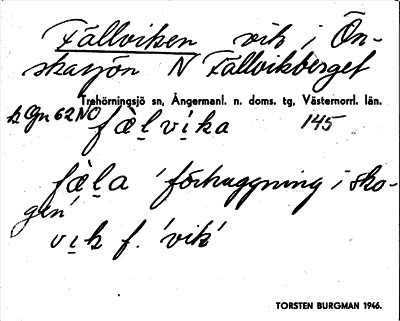 Fällviken vik i Ön-
skasjön N Fällvikberget
Trehörningsjö sn, Ångermanl. n. doms. tg, Västernorrl. län.
k Gn 62 NO fæ̀lvika 145
fæ̀la 'förhuggning i sko-
gen'
vik f. 'vik'
TORSTEN BURGMAN 1946.